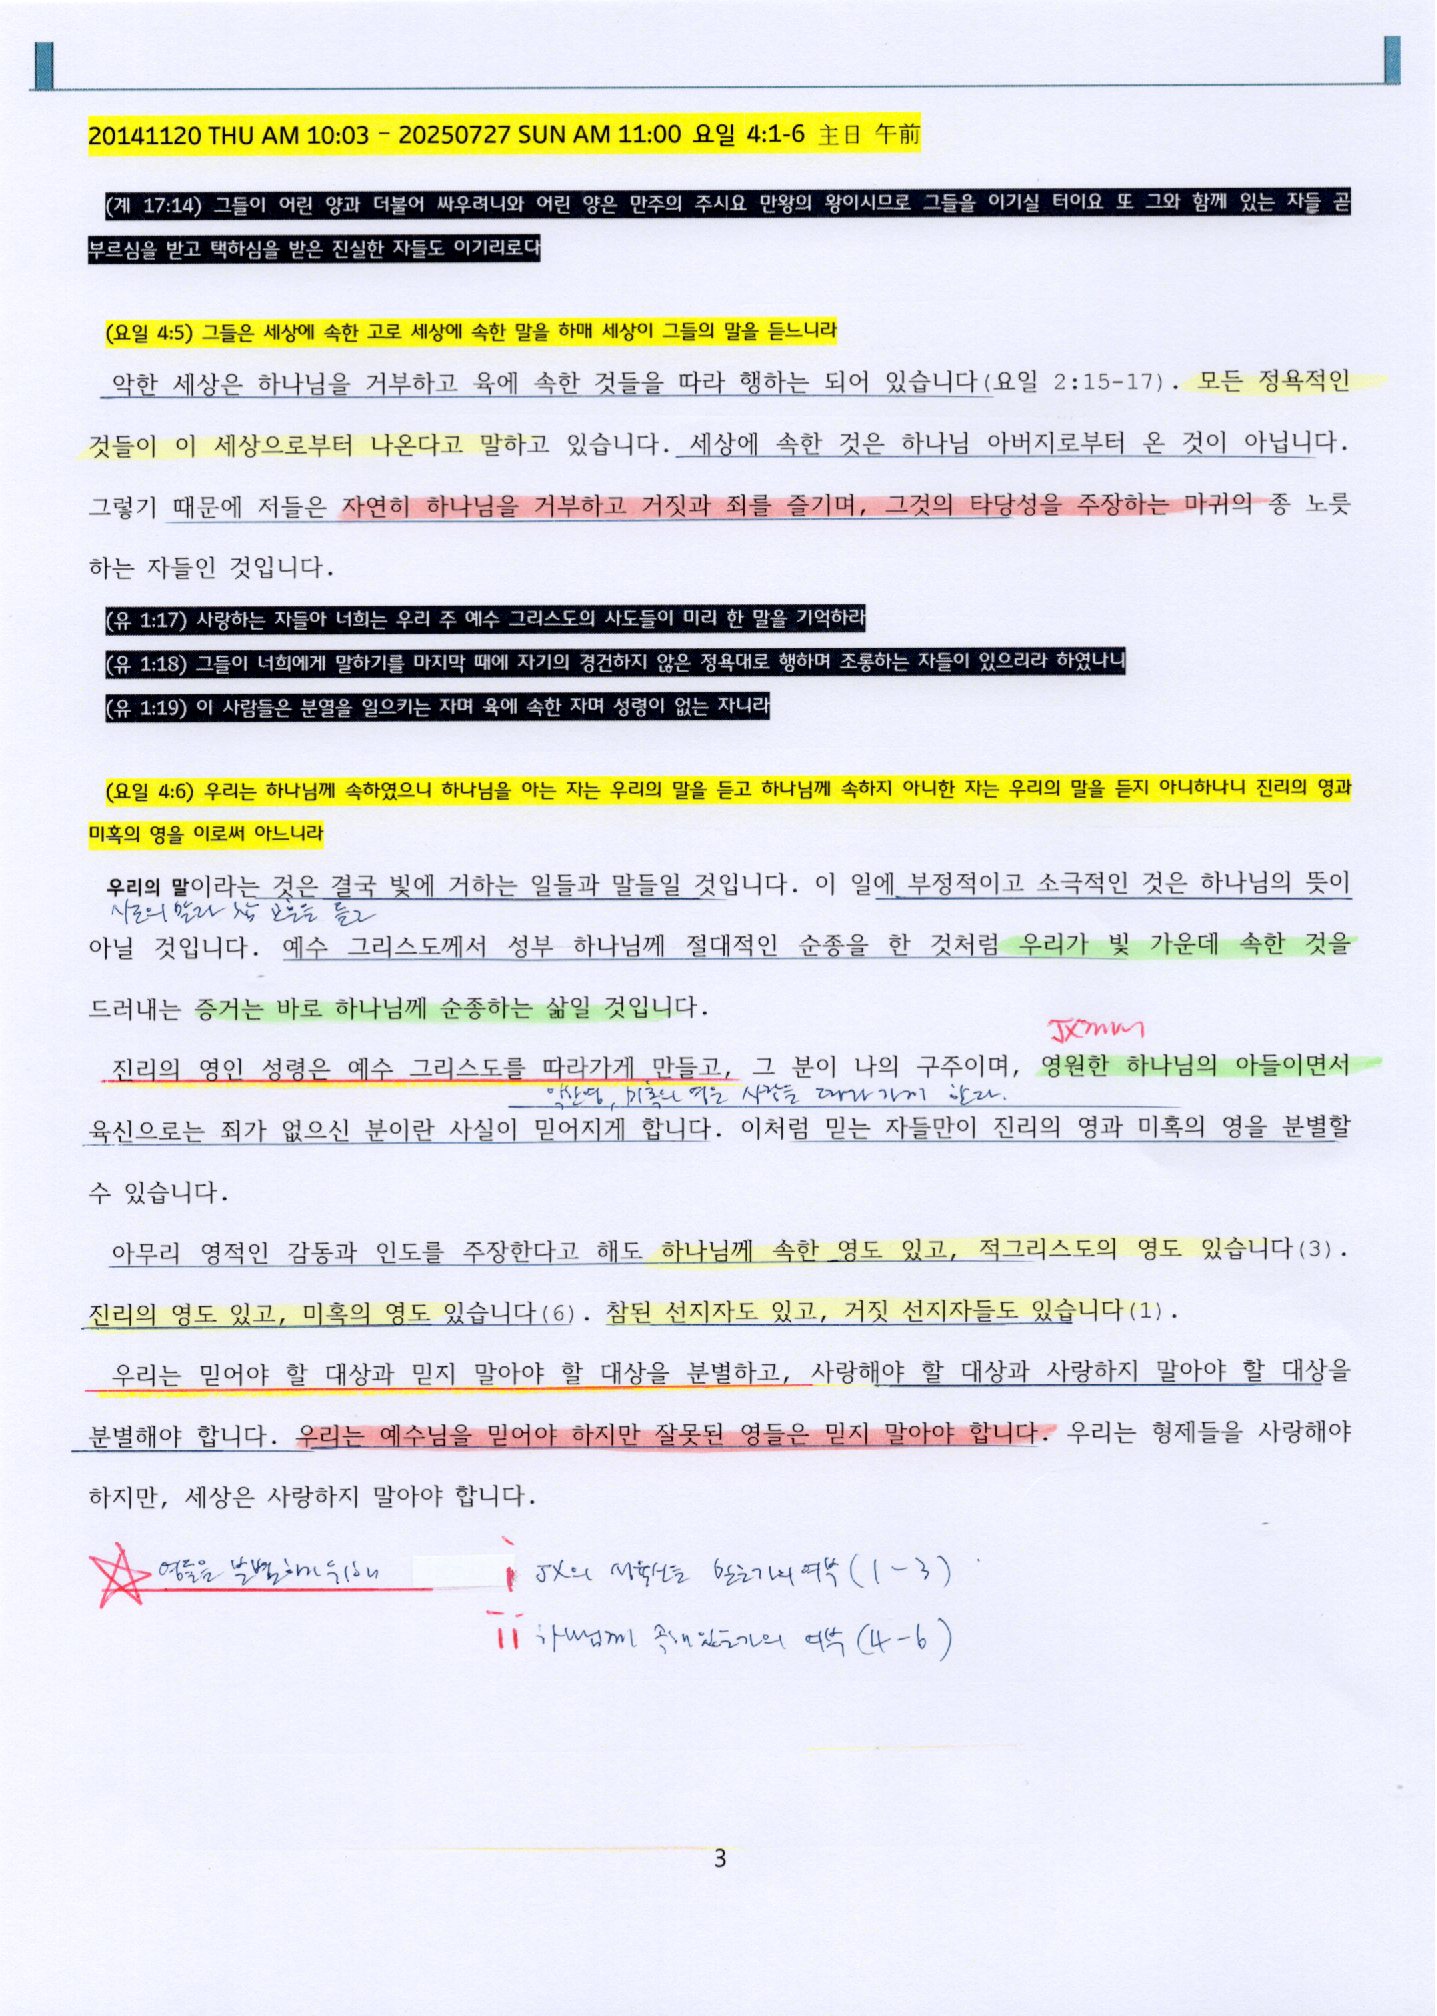 20141120 THU AM 10:03 – 20250727 SUN AM 11:00 요일 4:1-6 主日 午前
(계 17:14) 그들이 어린 양과 더불어 싸우려니와 어린 양은 만주의 주시요 만왕의 왕이시므로 그들을 이기실 터이요 또 그와 함께 있는 자들 곧
부르심을 받고 택하심을 받은 진실한 자들도 이기리로다
(요일 4:5) 그들은 세상에 속한 고로 세상에 속한 말을 하매 세상이 그들의 말을 듣느니라
악한 세상은 하나님을 거부하고 육에 속한 것들을 따라 행하는 되어 있습니다(요일 2:15-17). 모든 정욕적인
것들이 이 세상으로부터 나온다고 말하고 있습니다. 세상에 속한 것은 하나님 아버지로부터 온 것이 아닙니다.
그렇기 때문에 저들은 자연히 하나님을 거부하고 거짓과 죄를 즐기며, 그것의 타당성을 주장하는 마귀의 종 노릇
하는 자들인 것입니다.
(유 1:17) 사랑하는 자들아 너희는 우리 주 예수 그리스도의 사도들이 미리 한 말을 기억하라
(유 1:18) 그들이 너희에게 말하기를 마지막 때에 자기의 경건하지 않은 정욕대로 행하며 조롱하는 자들이 있으리라 하였나니
(유 1:19) 이 사람들은 분열을 일으키는 자며 육에 속한 자며 성령이 없는 자니라
(요일 4:6) 우리는 하나님께 속하였으니 하나님을 아는 자는 우리의 말을 듣고 하나님께 속하지 아니한 자는 우리의 말을 듣지 아니하나니 진리의 영과
미혹의 영을 이로써 아느니라
우리의 말이라는 것은 결국 빛에 거하는 일들과 말들일 것입니다. 이 일에 부정적이고 소극적인 것은 하나님의 뜻이
아닐 것입니다. 예수 그리스도께서 성부 하나님께 절대적인 순종을 한 것처럼 우리가 빛 가운데 속한 것을
드러내는 증거는 바로 하나님께 순종하는 삶일 것입니다.
진리의 영인 성령은 예수 그리스도를 따라가게 만들고, 그 분이 나의 구주이며, 영원한 하나님의 아들이면서
악한영, 미혹의 영은 사람을 따라가게 한다.
육신으로는 죄가 없으신 분이란 사실이 믿어지게 합니다. 이처럼 믿는 자들만이 진리의 영과 미혹의 영을 분별할
수 있습니다.
아무리 영적인 감동과 인도를 주장한다고 해도 하나님께 속한 영도 있고, 적그리스도의 영도 있습니다(3).
진리의 영도 있고, 미혹의 영도 있습니다(6). 참된 선지자도 있고, 거짓 선지자들도 있습니다(1).
우리는 믿어야 할 대상과 믿지 말아야 할 대상을 분별하고, 사랑해야 할 대상과 사랑하지 말아야 할 대상을
분별해야 합니다. 우리는 예수님을 믿어야 하지만 잘못된 영들은 믿지 말아야 합니다. 우리는 형제들을 사랑해야
하지만, 세상은 사랑하지 말아야 합니다.
영들을 분별하기 위해 i JX의 성육신을 믿는가의 여부 (1-3)
ii 하나님께 속해 있는가의 여부 (4-6)
3